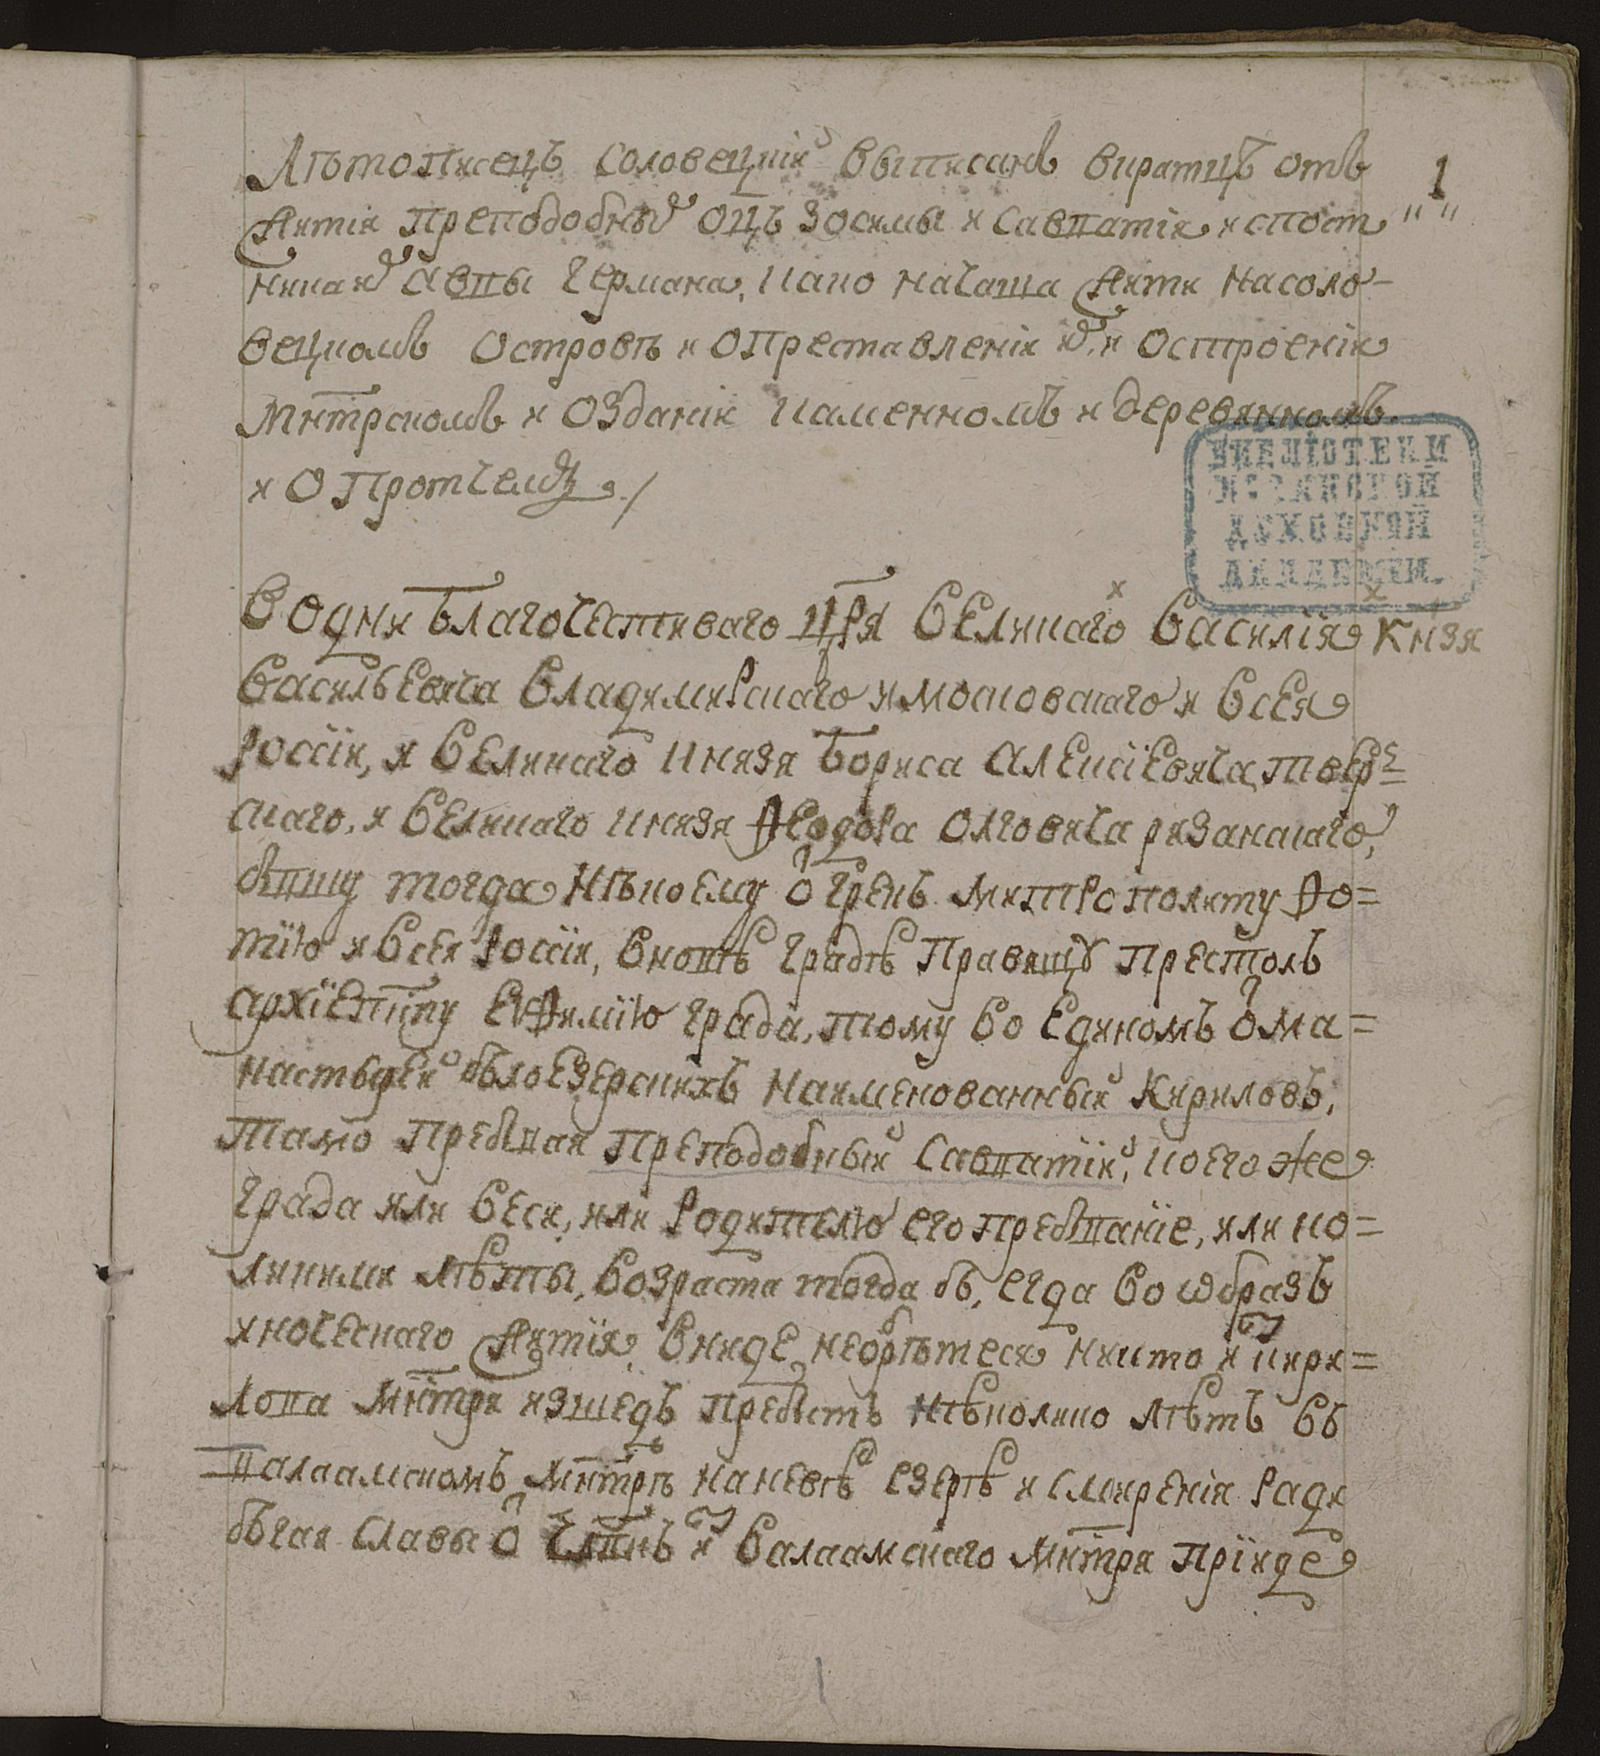 Лѣтописецъ соловецкій выписанъ вкратцѣ отъ
житія преподобныхъ оцъ Зосимы и Савватія и спост
ника ихъ аввы Германа, како начаша жити на соло-
вецкомъ островѣ и о преставленіи ихъ, и о строеніи
мнтрскомъ и о зданіи каменномъ и деревянномъ
и о протчемъ./
1
БИБЛІОТЕКИ
КАЗАНСКОЙ
ДУХОВНОЙ
АКАДЕМІИ.
Во дни благочестиваго цря великаго Василія князя
Васильевича владимирскаго и московскаго и всея
россіи, и великаго князя Бориса Алексіевича, твер-
скаго, и великаго князя Ѳеодора Олговича рязанскаго,
бывшу тогда нѣкоему ѿ грекъ митрополиту Фо=
тїю и всея россіи, вновѣ градѣ правящу престолъ
архїепⷭ҇кпу Еѵфимїю града, тому во единомъ ѿ ма=
настырей бѣлоезерскихъ наименованный Кириловъ,
тамо пребывая преподобный Савватїй, коего же
града или веси, или родителю его пребыванїе, или ко=
ликими лѣты, возраста тогда бѣ, егда во ѡбразъ
иноческаго житїя вниде, не обрѣтеся никто из кири=
лова мнтря изшедъ пребысть нѣколико лѣтъ въ
валаамскомъ мнтрѣ на невѣ езерѣ и смиренія ради
бѣгая славы ѿ члвкъ из валаамскаго мнтря прїиде